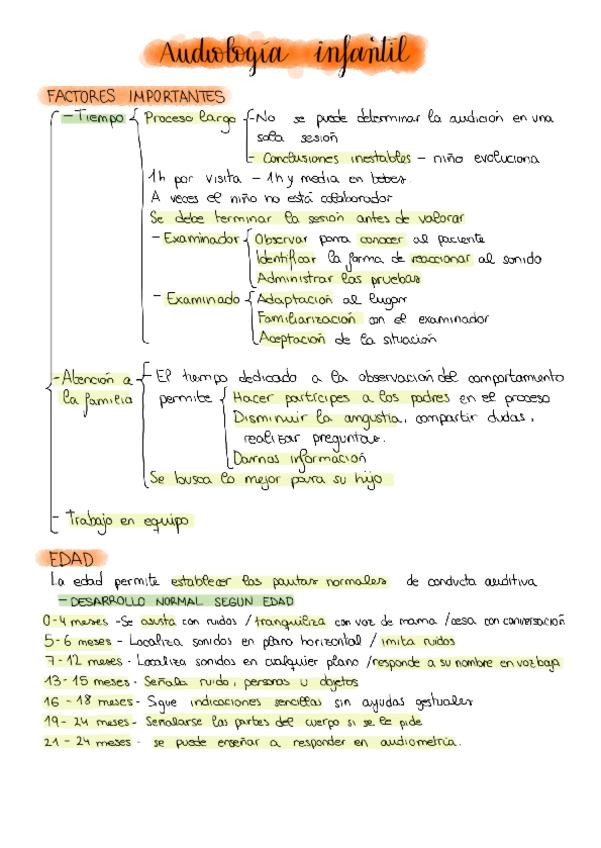 Audiología infantil
FACTORES IMPORTANTES
- Tiempo Proceso largo - No se puede determinar la audición en una
sola sesión
- Conclusiones inestables - niño evoluciona
1h por visita - 1h y media en bebes.
A veces el niño no está colaborador
Se debe terminar la sesión antes de valorar
- Examinador Observar para conocer al paciente
Identificar la forma de reaccionar al sonido
Administrar las pruebas
- Examinado Adaptación al lugar
Familiarización con el examinador
Aceptación de la situación
- Atención a - El tiempo dedicado a la observación del comportamiento
la familia permite Hacer partícipes a los padres en el proceso
Disminuir la angustia, compartir dudas,
realizar preguntas.
Darnos información
Se busca lo mejor para su hijo
- Trabajo en equipo
EDAD
La edad permite establecer las pautas normales de conducta auditiva
- DESARROLLO NORMAL SEGUN EDAD
0-4 meses - Se asusta con ruidos / tranquiliza con voz de mama / cesa con conversación
5-6 meses - Localiza sonidos en plano horizontal / imita ruidos
7-12 meses - Localiza sonidos en cualquier plano / responde a su nombre en voz baja
13-15 meses - Señala ruido, personas u objetos
16 - 18 meses - Sigue indicaciones sencillas sin ayudas gestuales
19 - 24 meses - Señalarse las partes del cuerpo si se le pide
21 - 24 meses - se puede enseñar a responder en audiometría.